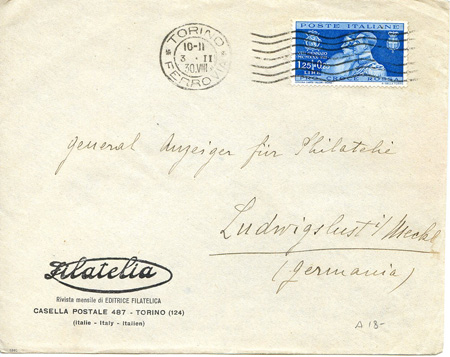 TORINO
10-11
3 · II
30.VIII
FERROVIA
POSTE ITALIANE
1,25
LIRE
PRO CROCE ROSSA
general Anzeiger für Philatelie
Ludwigslust i/Meckl
(Germania)
Filatelia
Rivista mensile di EDITRICE FILATELICA
CASELLA POSTALE 487 - TORINO (124)
(Italie - Italy - Italien)
A 18-